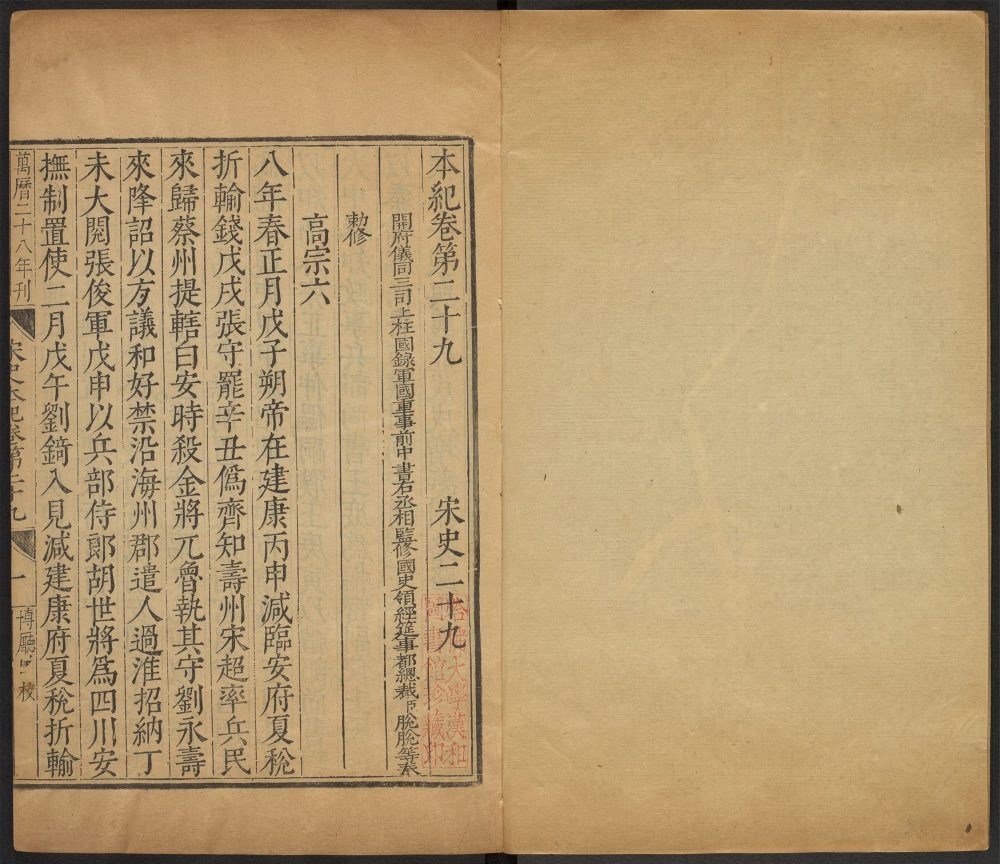 本紀卷第二十九 宋史二十九
開府儀同三司上柱國錄軍國重事前中書右丞相監修國史領經筵事都總裁臣脫脫等奉
勑修
高宗六
八年春正月戊子朔帝在建康丙申減臨安府夏稅
折輸錢戊戌張守罷辛丑偽齊知壽州宋超率兵民
來歸蔡州提轄白安時殺金將兀魯執其守劉永壽
來降詔以方議和好禁沿海州郡遣人過淮招納丁
未大閱張俊軍戊申以兵部侍郎胡世將爲四川安
撫制置使二月戊午劉錡入見減建康府夏稅折輸
萬曆二十八年刊
宋史本紀卷第二十九
一
博廳 校
大學漢和
圖書館珍藏印